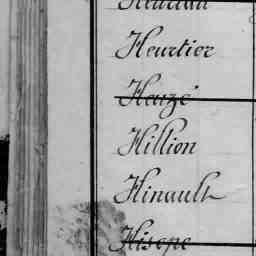 Heurtier
Heuzé
Hillion
Hinault
Hisope